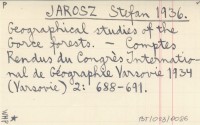 P
JAROSZ Stefan 1936.
Geographical studies of the
Gorce forests. — Comptes
Rendus du Congrès Internatio
nal de Géographie Varsovie 1934
(Varsovie) 2: 688-691.